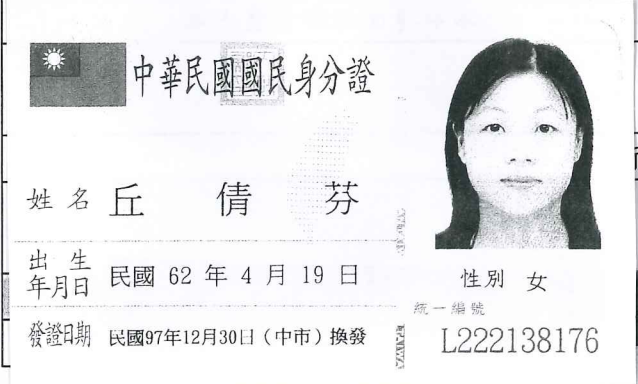 中華民國國民身分證
姓名 丘倩芬
出生年月日 民國 62 年 4 月 19 日
性別 女
發證日期 民國97年12月30日（中市）換發
統一編號
L222138176